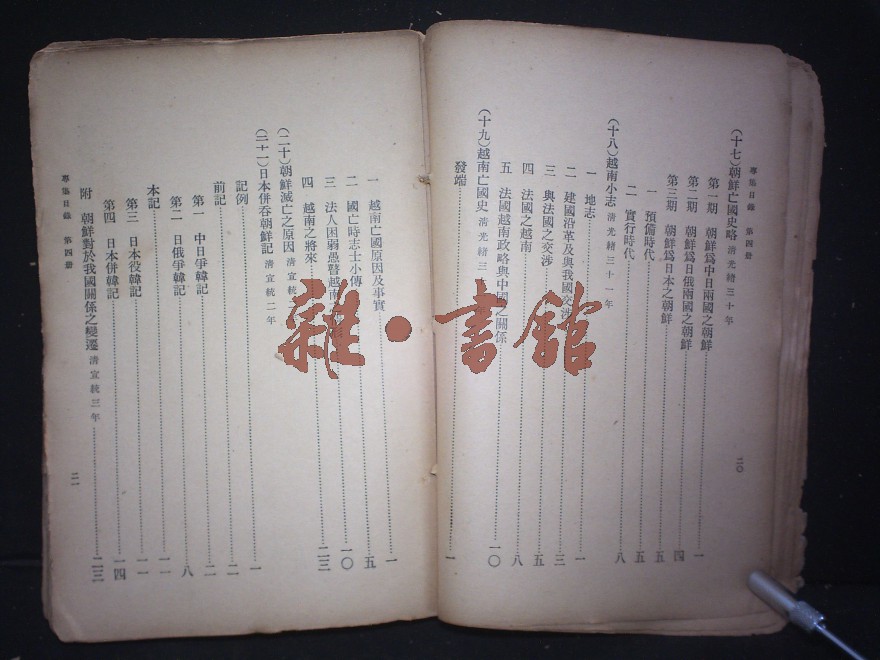 專集目錄 第四册
(十七)朝鮮亡國史略 清光緒三十年
第一期 朝鮮爲中日兩國之朝鮮 一
第二期 朝鮮爲日俄兩國之朝鮮 四
第三期 朝鮮爲日本之朝鮮 五
一 預備時代 五
二 實行時代 八
(十八)越南小志 清光緒三十一年
一 地志 一
二 建國沿革及與我國交涉 三
三 與法國之交涉 五
四 法國之越南 八
五 法國越南政略與中國之關係 一〇
(十九)越南亡國史 清光緒三
發端 一
二〇
一 越南亡國原因及事實 一
二 國亡時志士小傳 五
三 法人困弱愚瞽越南 一〇
四 越南之將來 二三
(二十)朝鮮滅亡之原因 清宣統二
(二十一)日本併吞朝鮮記 清宣統二年
記例 一
前記 二
第一 中日爭韓記 二
第二 日俄爭韓記 八
本記 一一
第三 日本役韓記 一一
第四 日本併韓記 一四
附 朝鮮對於我國關係之變遷 清宣統三年 二三
專集目錄 第四册
二一
雜·書館